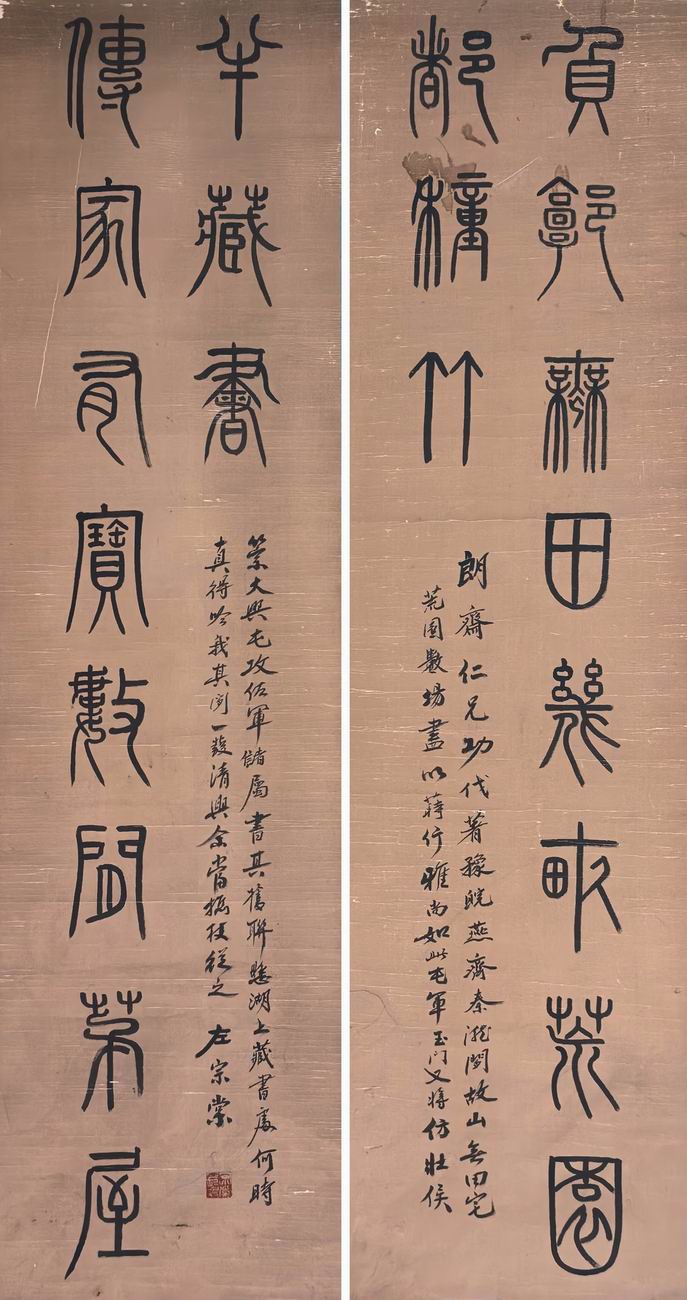 負郭無田幾畝荒園
都種竹
朗齋仁兄功伐著豫皖燕齊秦隴間故山無田宅
荒園數塲盡以蒔竹雅尚如此屯軍玉門又將仿壯侯
傳家有寶數間茅屋
半藏書
營大興屯政佐軍儲屬書其舊聯懸湖上藏書處何時
真得吟哦其間一發清興余當攜杖從之 左宗棠